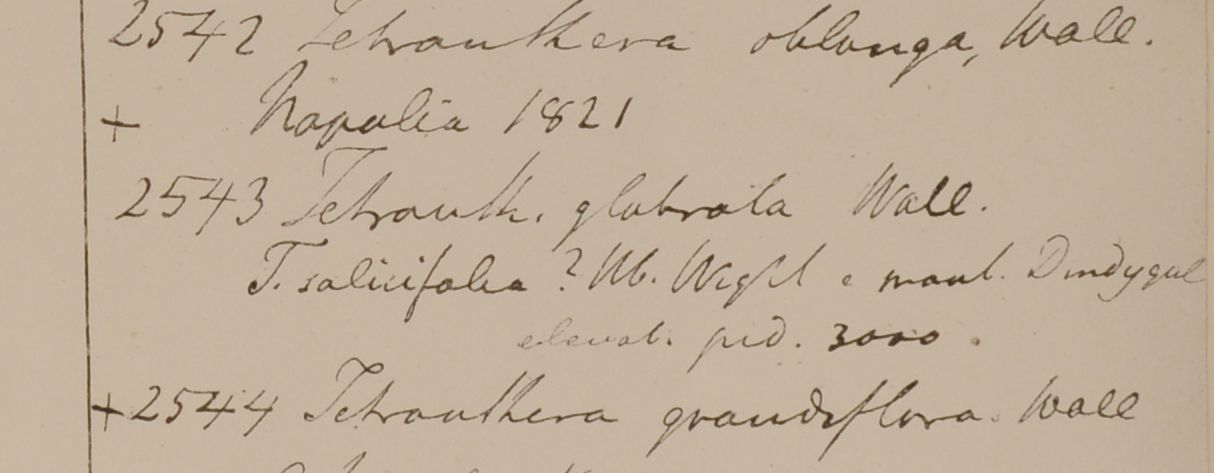 2542 Tetranthera oblonga, Wall.
+ Napalia 1821
2543 Tetranth. glabrata Wall.
T. salicifolia? Hb. Wight e mont. Dindygul
elevat. ped. 3000.
+2544 Tetranthera grandiflora. Wall